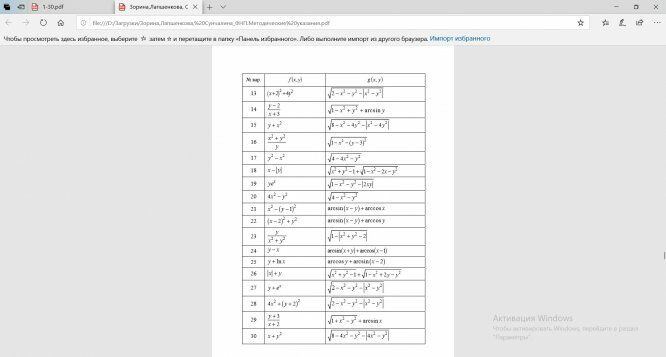 1-30.pdf
Зорина,Лапшенкова, С
file:///D:/Загрузки/Зорина,Лапшенкова,%20Сучилина_ФНП.Методические%20указания.pdf
Чтобы просмотреть здесь избранное, выберите ☆ затем ☆ и перетащите в папку «Панель избранного». Либо выполните импорт из другого браузера. Импорт избранного
№ вар. f(x,y) g(x,y)
13 (x+2)²+4y² √(2−x²−y²−|x²−y²|)
14 (y−2)/(x+3) √(1−x²+y²) + arcsin y
15 y+x² √(8−x²−4y²−|x²−4y²|)
16 (x²+y²)/y √(1−x²−(y−3)²)
17 y²−x² √(4−4x²−y²)
18 x−|y| √(x²+y²−1)+√(1−x²−2x−y²)
19 yeˣ √(1−x²−y²−|2xy|)
20 4x²−y² √(4−x²−y²)
21 x²−(y−1)² arcsin(x−y)+arccos x
22 (x−2)²+y² arcsin(x−y)+arccos y
23 y/(x²+y²) √(1−|x²+y²−2|)
24 y−x arcsin(x+y)+arccos(x−1)
25 y+ln x arccos y+arcsin(x−2)
26 |x|+y √(x²+y²−1)+√(1−x²+2y−y²)
27 y+eˣ √(2−x²−y²−|x²−y²|)
28 4x²+(y+2)² √(2−x²−y²−|x²−y²|)
29 (y+3)/(x+2) √(1+x²−y²) + arcsin x
30 x+y² √(8−4x²−y²−|4x²−y²|)
Активация Windows
Чтобы активировать Windows, перейдите в раздел
"Параметры".